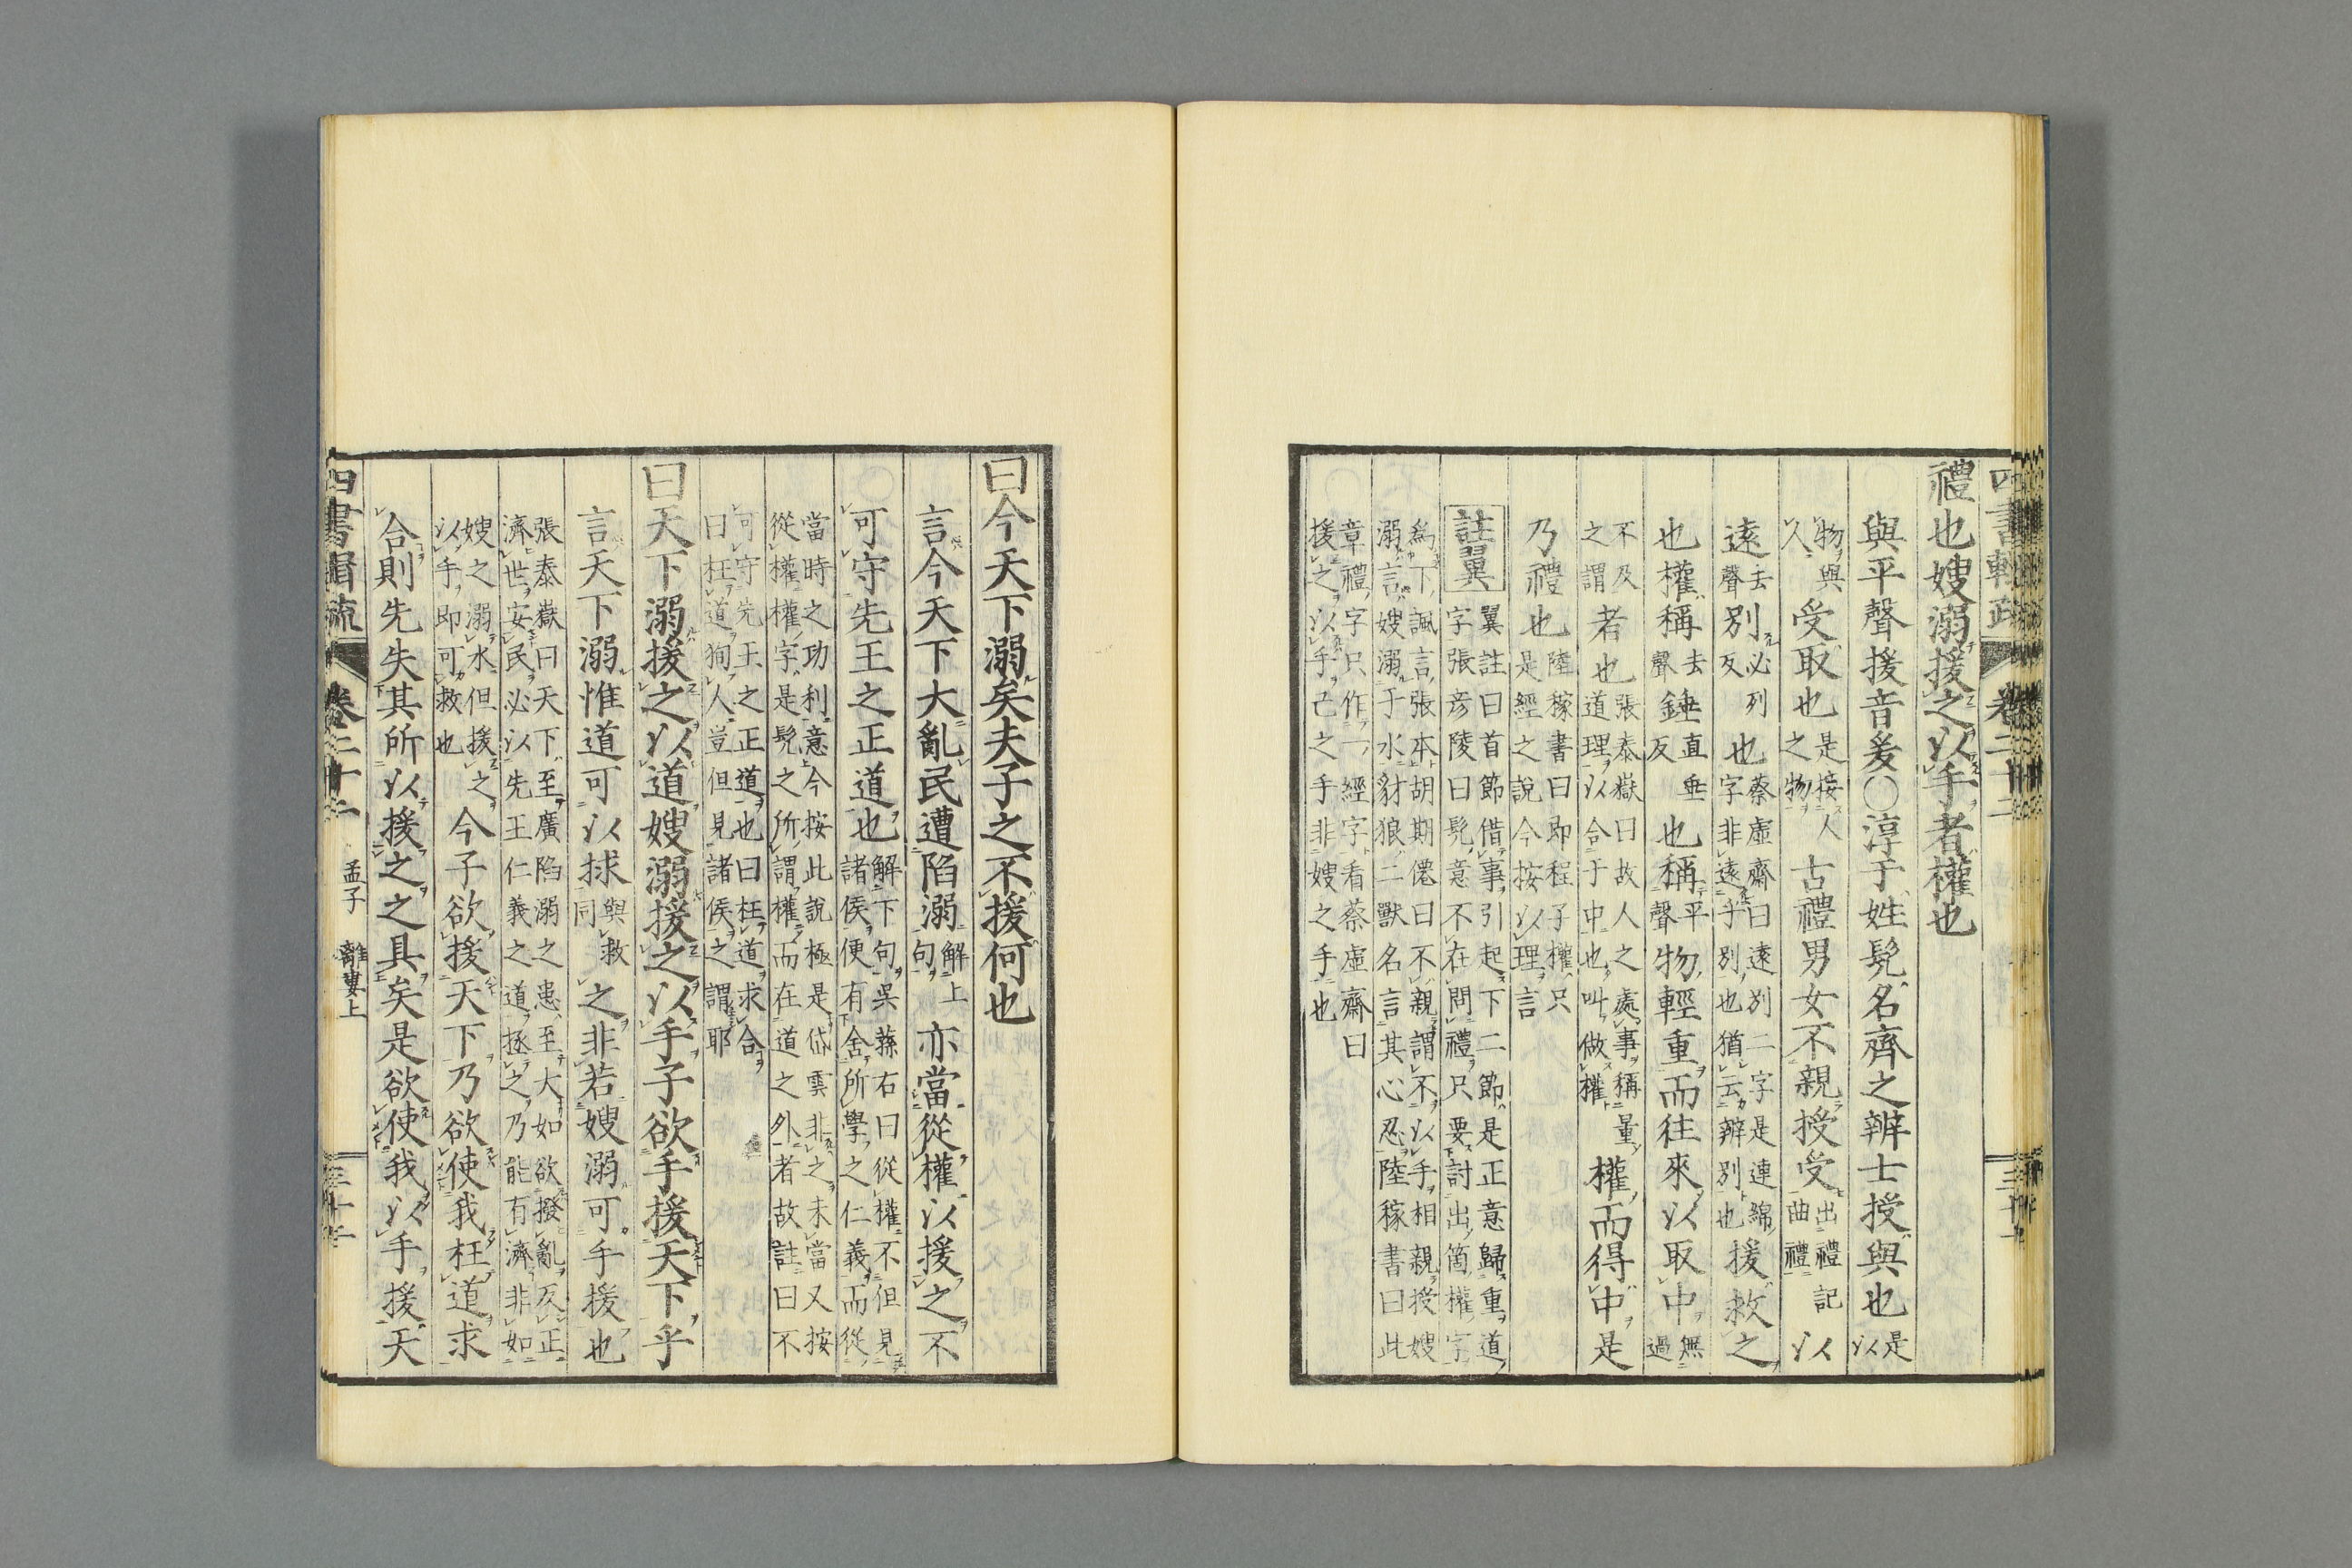 禮也嫂溺援之以手者權也
與平聲援音爰○淳于姓髡名齊之辨士授與也是以
物與人受取也是接人之物古禮男女不親授受出禮記曲禮以
遠去聲別必列反也蔡虛齋曰遠別二字是連綿字非遠乎別也猶云辨別也援救之
也權稱去聲錘直垂反也稱平聲物輕重而往來以取中無過
不及之謂者也張泰嶽曰故人之處事稱量道理以合于中也叫做權權而得中是
乃禮也陸稼書曰即程子權只是經之說今按以理言
註翼翼註曰首節借事引起下二節是正意歸重道字張彥陵曰髡意不在問禮只要討出箇權字
爲下諷言張本胡期僊曰不親謂不以手相親授嫂溺言嫂溺于水豺狼二獸名言其心忍陸稼書曰此
章禮字只作一經字看蔡虛齋曰援之以手己之手非嫂之手也
四書輯疏 卷二十二
曰今天下溺矣夫子之不援何也
言今天下大亂民遭陷溺解上句亦當從權以援之不
可守先王之正道也解下句吳蓀右曰從權不但見諸侯便有舍所學之仁義而從
當時之功利意今按此說極是岱雲非之未當又按從權權字是髡之所謂權而在道之外者故註曰不
可守先王之正道也曰枉道求合曰枉道狥人豈但見諸侯之謂耶
曰天下溺援之以道嫂溺援之以手子欲手援天下乎
言天下溺惟道可以捄與救同之非若嫂溺可手援也
張泰嶽曰天下至廣陷溺之患至大如欲撥亂反正濟世安民必以先王仁義之道拯之乃能有濟非如
嫂之溺水但援之以手即可救也今子欲援天下乃欲使我枉道求
合則先失其所以援之之具矣是欲使我以手援天
四書輯疏 卷二十二 孟子 離婁上